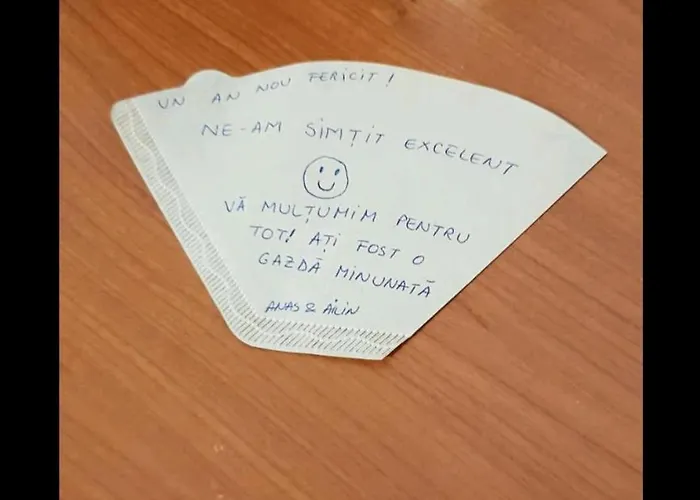 UN AN NOU FERICIT!
NE-AM SIMȚIT EXCELENT
VĂ MULȚUMIM PENTRU
TOT! AȚI FOST O
GAZDĂ MINUNATĂ
ANAS & AILIN